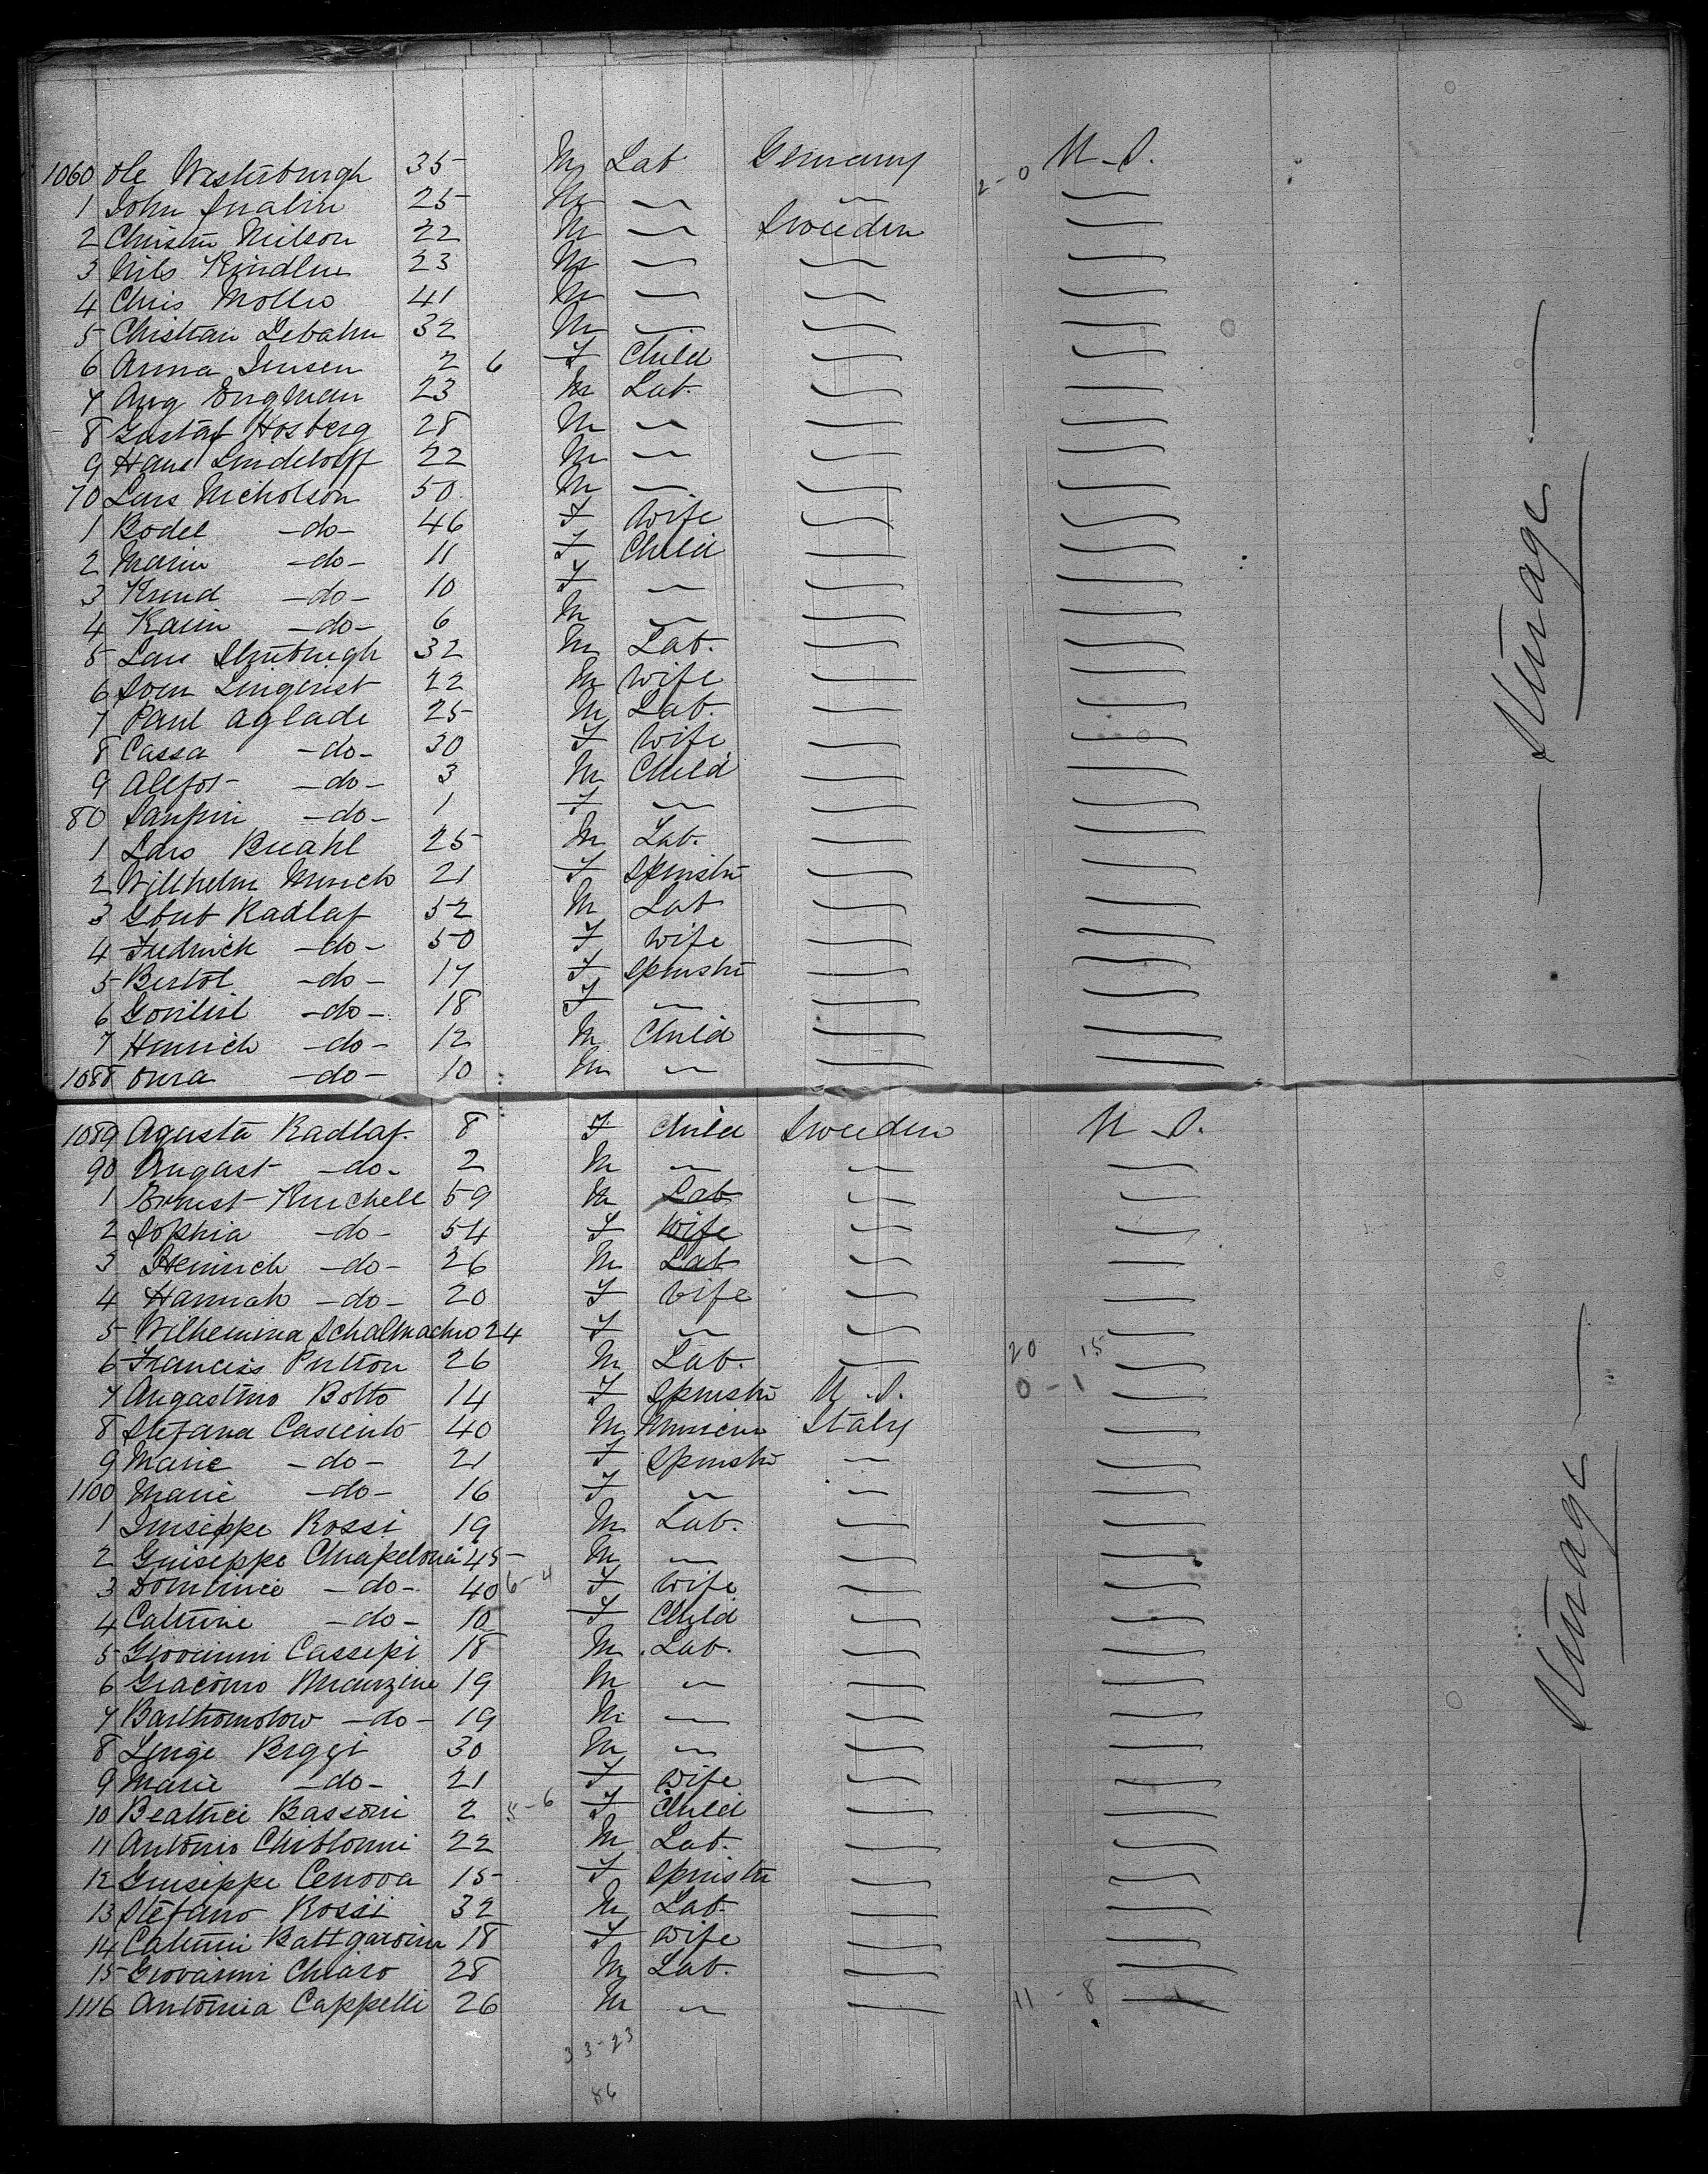 1060 Ole Westerburgh 35 M Lab Germany 2-0 U.S.
1 John 25 M " " "
2 Christn Neilson 22 M " Sweeden "
3 Nils Kindlen 23 M " " "
4 Chris Moller 41 M " " "
5 Christian Lebahn 32 M " " "
6 Anna Jensen 2 6 F Child " "
7 Aug Engman 23 M Lab. " "
8 Gustaf Hosberg 28 M " " "
9 Hans Lindeloff 22 M " " "
70 Lars Nicholson 50 M " " "
1 Bodel -do- 46 F Wife " "
2 Marin -do- 11 F Child " "
3 Knud -do- 10 F " " "
4 Karin -do- 6 M " " "
5 Lars 32 M Lab. " "
6 Sven Linqvist 22 M Wife " "
7 Paul Aglade 25 M Lab. " "
8 Cassa -do- 30 F Wife " "
9 -do- 3 M Child " "
80 -do- 1 F " " "
1 Lars 25 M Lab. " "
2 Willhelm Munch 21 F Spinstr " "
3 Radlaf 52 M Lab " "
4 Fredrick -do- 50 F Wife " "
5 Bertol -do- 17 F Spinstr " "
6 -do- 18 F " " "
7 Hinrich -do- 12 M Child " "
1088 -do- 10 M " " "
— Steerage —
1089 Agusta Radlaf. 8 F Child Sweeden U.S.
90 August -do- 2 M " " "
1 Ernest Kuchell 59 M Lab " "
2 Sophia -do- 54 F Wife " "
3 Heinrich -do- 26 M Lab " "
4 Hannah -do- 20 F Wife " "
5 Wilhemina 24 F " " "
6 Francis 26 M Lab. " 20 15 "
7 Augastino Botto 14 F Spinstr U.S. 0-1 "
8 Stefana Casciento 40 M Italy "
9 Marie -do- 21 F Spinstr " "
1100 Marie -do- 16 F " " "
1 Guiseppe Rossi 19 M Lab. " "
2 Guiseppe Chiapeloni 45 M " " "
3 Dominici -do- 40 6-4 F Wife " "
4 Catrine -do- 10 F Child " "
5 Giovanni Cassepi 18 M Lab. " "
6 Giacomo 19 M " " "
7 Barthomolow -do- 19 M " " "
8 30 M " " "
9 Marie -do- 21 F Wife " "
10 Beatrici Bassoni 2 5-6 F Child " "
11 Antonio 22 M Lab. " "
12 Guiseppe Cenova 15 F Spinstr " "
13 Stefano Rossi 32 M Lab. " "
14 18 F Wife " "
15 Giovanni Chiaro 28 M Lab. " "
1116 Antonia Cappelli 26 M " " 11-8 "
— Steerage —
33-23
86